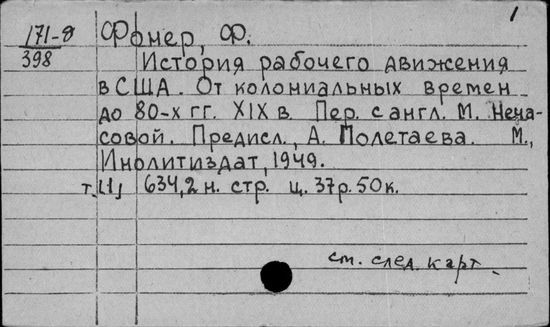 1
171-8
398
Фонер, Ф.
История рабочего движения
в США. От колониальных времен
до 80-х гг. XIX в. Пер. с англ. М. Нена-
совой. Предисл., А. Полетаева. М.,
Инолитиздат, 1949.
т. [1] 634, 2 н. стр. ц. 37 р. 50 к.
см. след. карт.